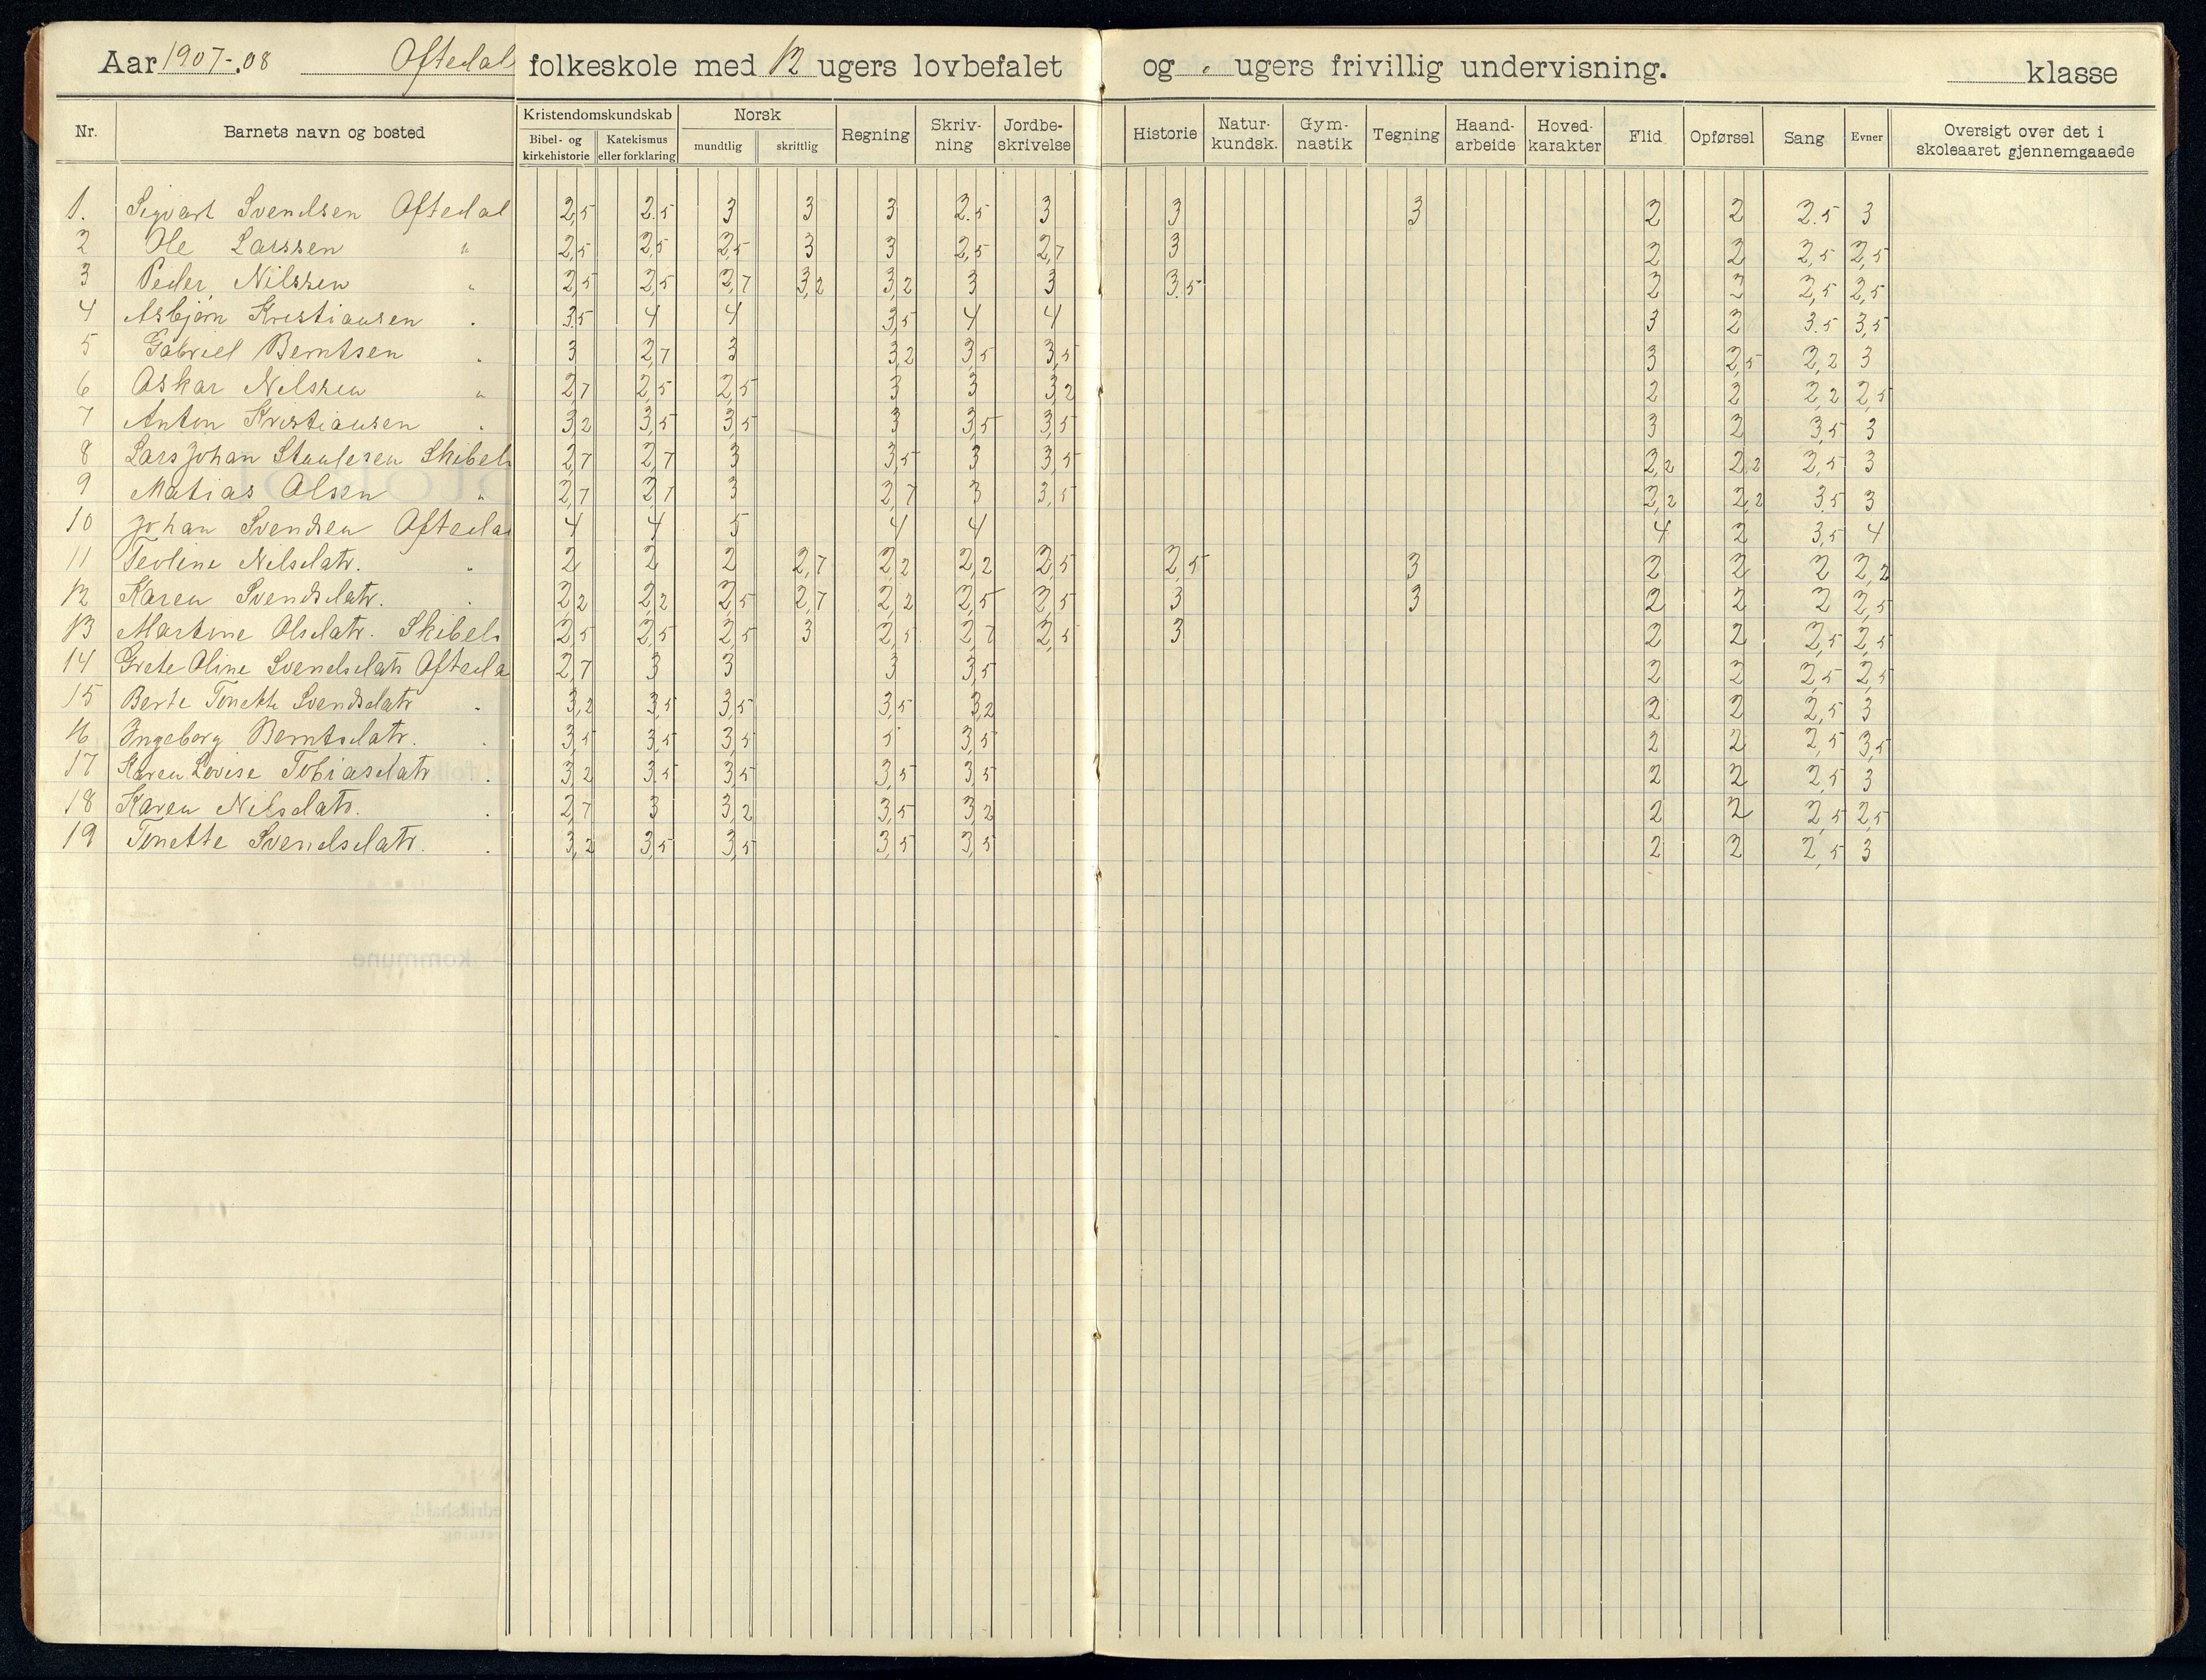 Aar 1907-.08 Oftedal folkeskole med 12 ugers lovbefalet og . ugers frivillig undervisning. klasse
Nr. Barnets navn og bosted Kristendomskundskab Bibel- og kirkehistorie Katekismus eller forklaring Norsk mundtlig skriftlig Regning Skriv-ning Jordbe-skrivelse Historie Natur-kundsk. Gym-nastik Tegning Haand-arbeide Hoved-karakter Flid Opførsel Sang Evner Oversigt over det i skoleaaret gjennemgaaede
1. Sigvart Svendsen Oftedal 2,5 2.5 3 3 3 2.5 3 3 3 2 2 2.5 3
2 Ole Larssen " 2,5 2,5 2,5 3 3 2,5 2,7 3 2 2 2,5 2,5
3 Peder Nilssen " 2,5 2,5 2,7 3,2 3,2 3 3 3,5 2 2 2,5 2,5
4 Asbjørn Kristiansen . 3,5 4 4 3,5 4 4 3 2 3.5 3,5
5 Gabriel Berntsen . 3 2,7 3 3,2 3,5 3,5 3 2,5 2,2 3
6 Oskar Nilssen " 2,7 2,5 2,5 3 3 3,2 2 2 2,2 2,5
7 Anton Kristiansen . 3,2 3,5 3,5 3 3,5 3,5 3 2 3,5 3
8 Lars Johan Skibel 2,7 2,7 3 3,5 3 3,5 2,2 2,2 2,5 3
9 Matias Olsen " 2,7 2,7 3 2,7 3 3,5 2,2 2,2 3,5 3
10 Johan Svendsen Oftedal 4 4 5 4 4 4 2 3,5 4
11 Teoline Nilsdatr. " 2 2 2 2,7 2,2 2,2 2,5 2,5 3 2 2 2 2,2
12 Karen Svendsdatr. . 2,2 2,2 2,5 2,7 2,2 2,5 2,5 3 3 2 2 2 2,5
13 Martine Olsdatr. Skibels 2,5 2,5 2,5 3 2,5 2,7 2,5 3 2 2 2,5 2,5
14 Grete Oline Svendsdatr Ofteda 2,7 3 3 3 3,5 2 2 2,5 2,5
15 Berte Tonette Svendsdatr . 3,2 3,5 3,5 3,5 3,2 2 2 2,5 3
16 Ingeborg Berntsdatr. . 3,5 3,5 3,5 5 3,5 2 2 2,5 3,5
17 Karen Lovise Tobiasdatr . 3,2 3.5 3,5 3,5 3,5 2 2 2,5 3
18 Karen Nilsdatr. . 2,7 3 3,2 3,5 3,2 2 2 2,5 2,5
19 Tonette Svendsdatr. . 3,2 3,5 3,5 3,5 3,5 2 2 2,5 3